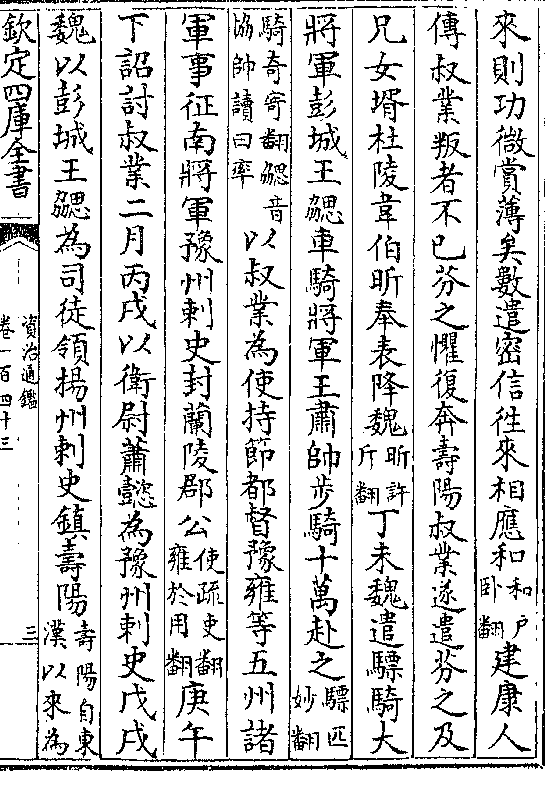 來則功微賞薄矣數遣密信徃來相應和和户卧翻建康人
傳叔業叛者不已芬之懼復奔壽陽叔業遂遣芬之及
兄女壻杜陵韋伯昕奉表降魏昕許斤翻丁未魏遣驃騎大
將軍彭城王勰車騎將軍王肅帥步騎十萬赴之驃匹妙翻
騎奇寄翻勰音協帥讀曰率以叔業為使持節都督豫雍等五州諸
軍事征南將軍豫州刺史封蘭陵郡公使疏吏翻雍於用翻庚午
下詔討叔業二月丙戌以衛尉蕭懿為豫州刺史戊戌
魏以彭城王勰為司徒領揚州刺史鎮壽陽壽陽自東漢以來為
欽定四庫全書
資治通鑑
卷一百四十三
三